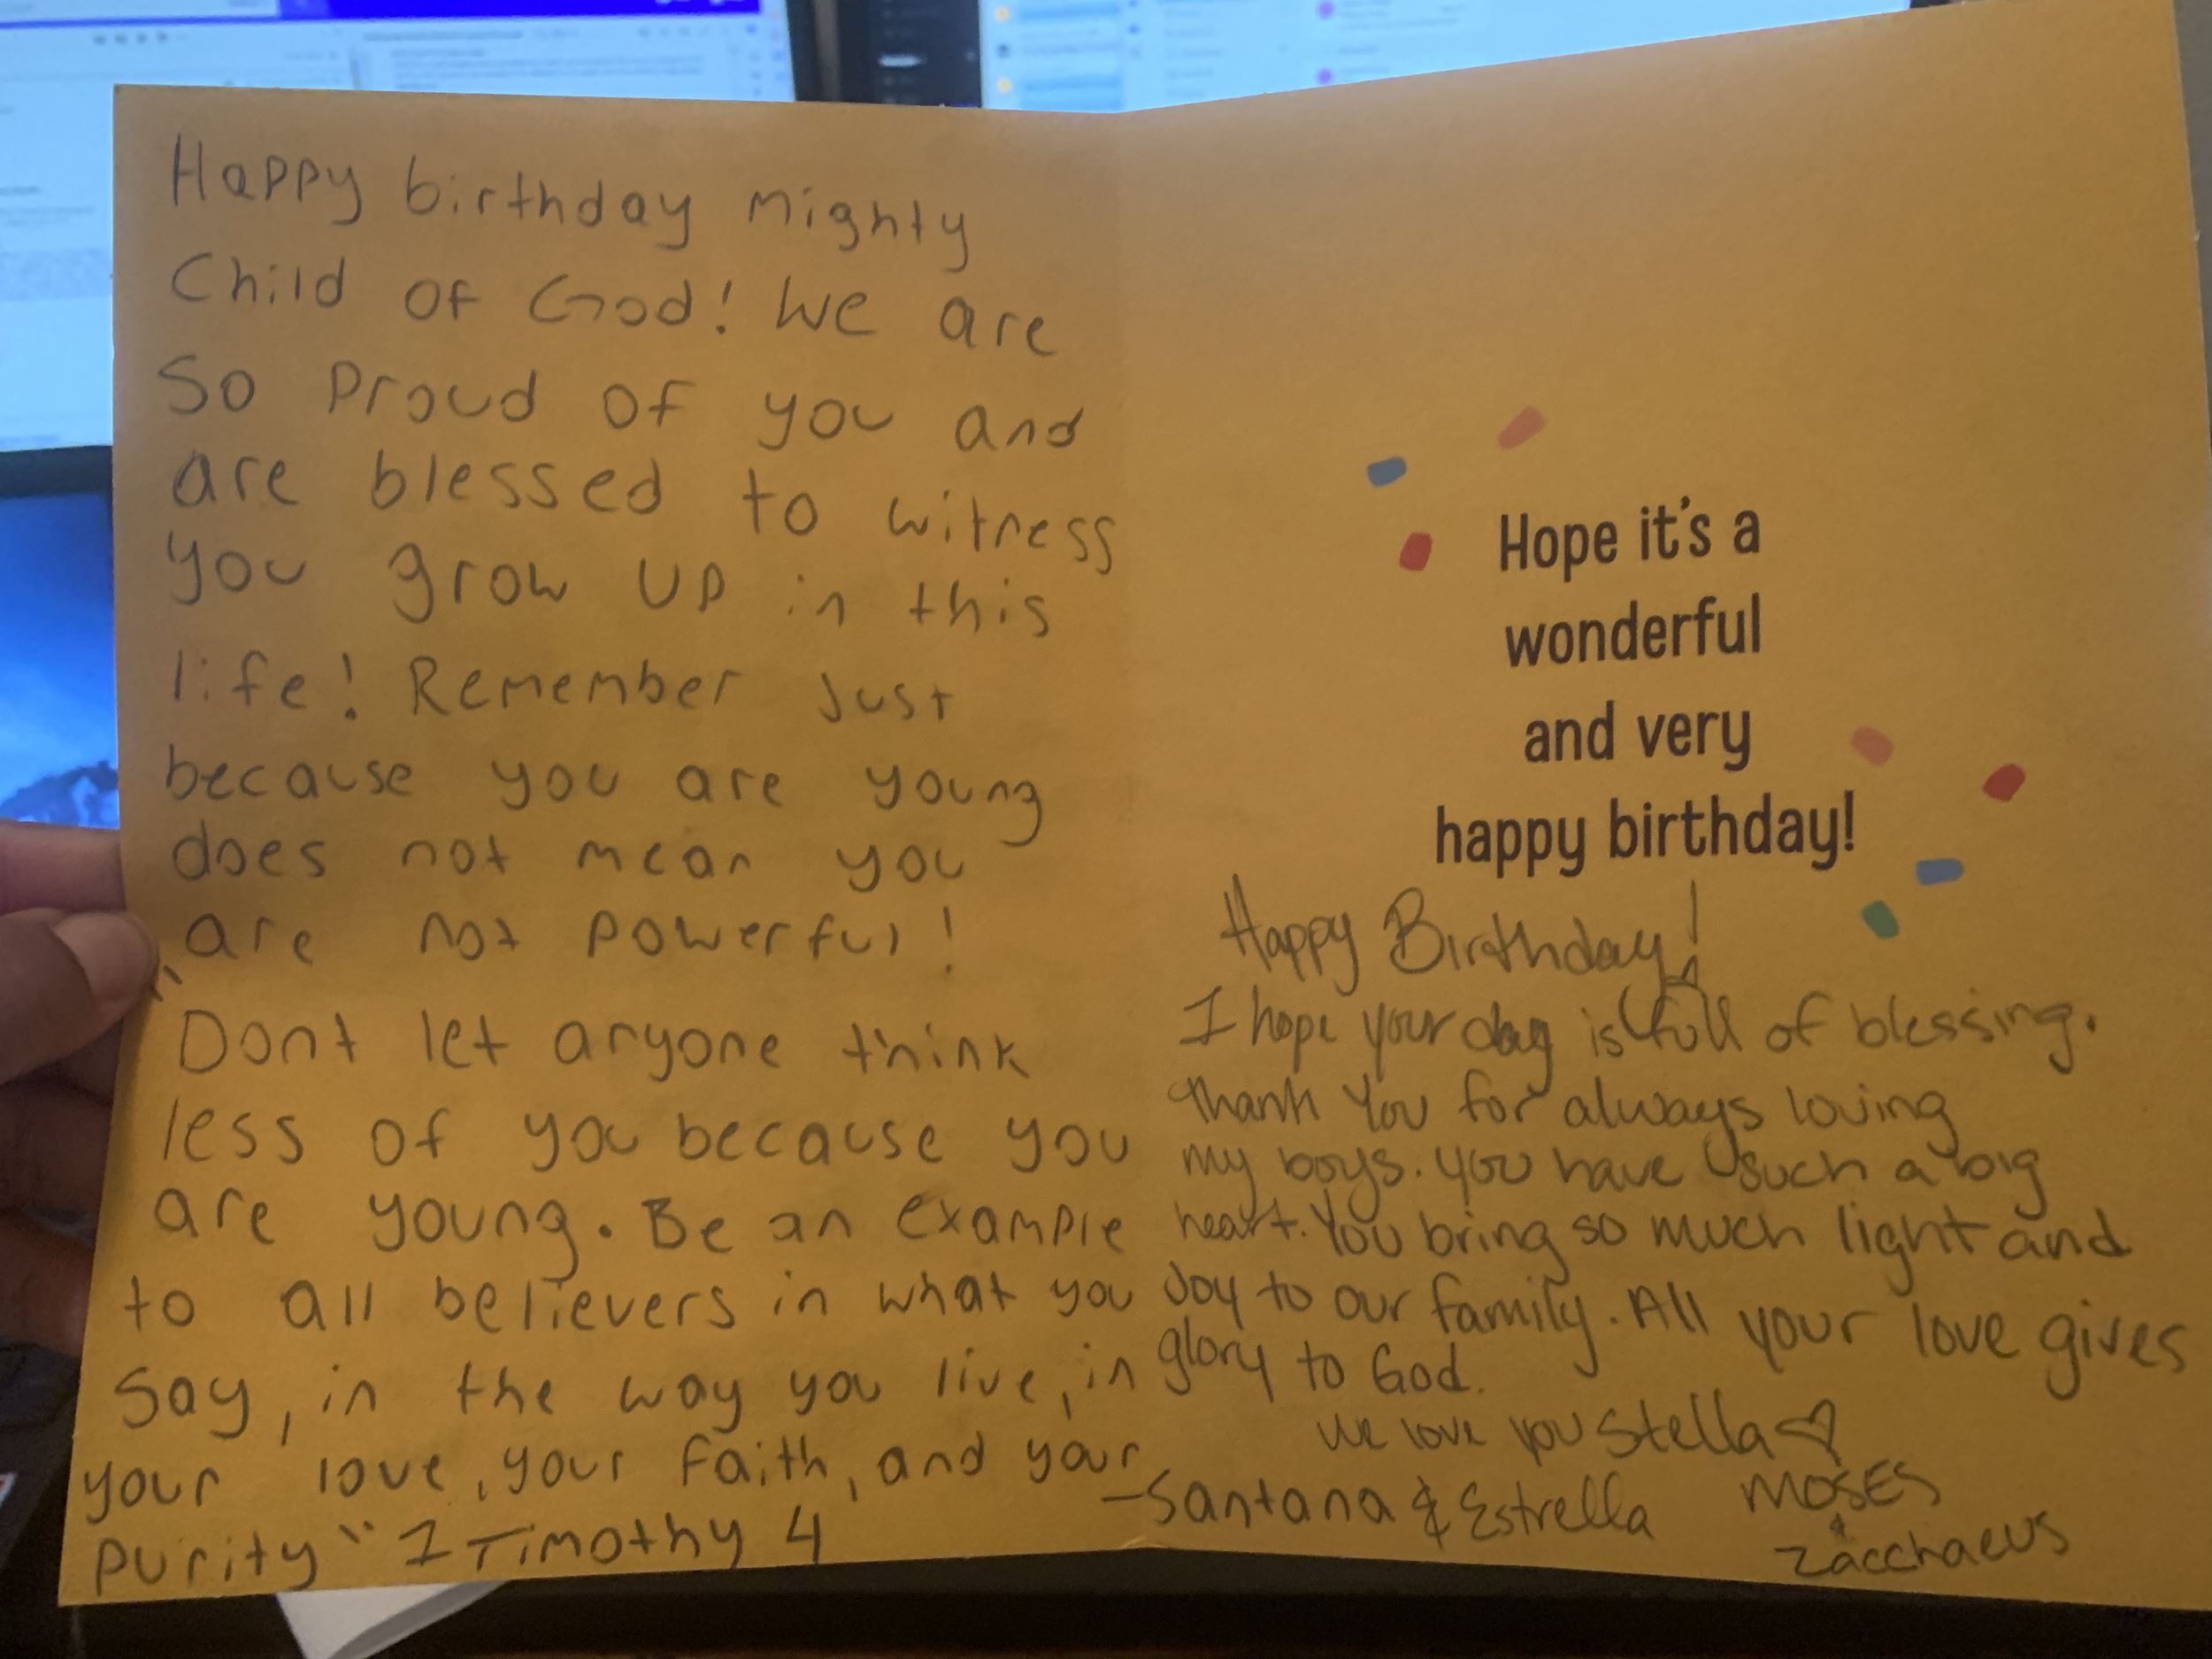 Happy birthday mighty
Child of God! We are
So Proud of you and
are blessed to witness
you grow up in this
life! Remember Just
because you are young
does not mean you
are not powerful!
"Dont let anyone think
less of you because you
are young. Be an example
to all believers in what you
Say, in the way you live, in
your love, your faith, and your
purity" 1 Timothy 4
Hope it's a
wonderful
and very
happy birthday!
Happy Birthday!
I hope your day is full of blessing.
Thank You for always loving
my boys. You have such a big
heart. You bring so much light and
Joy to our family. All your love gives
glory to God.
We love you Stella♡
-Santana & Estrella
MOSES
&
Zacchaeus